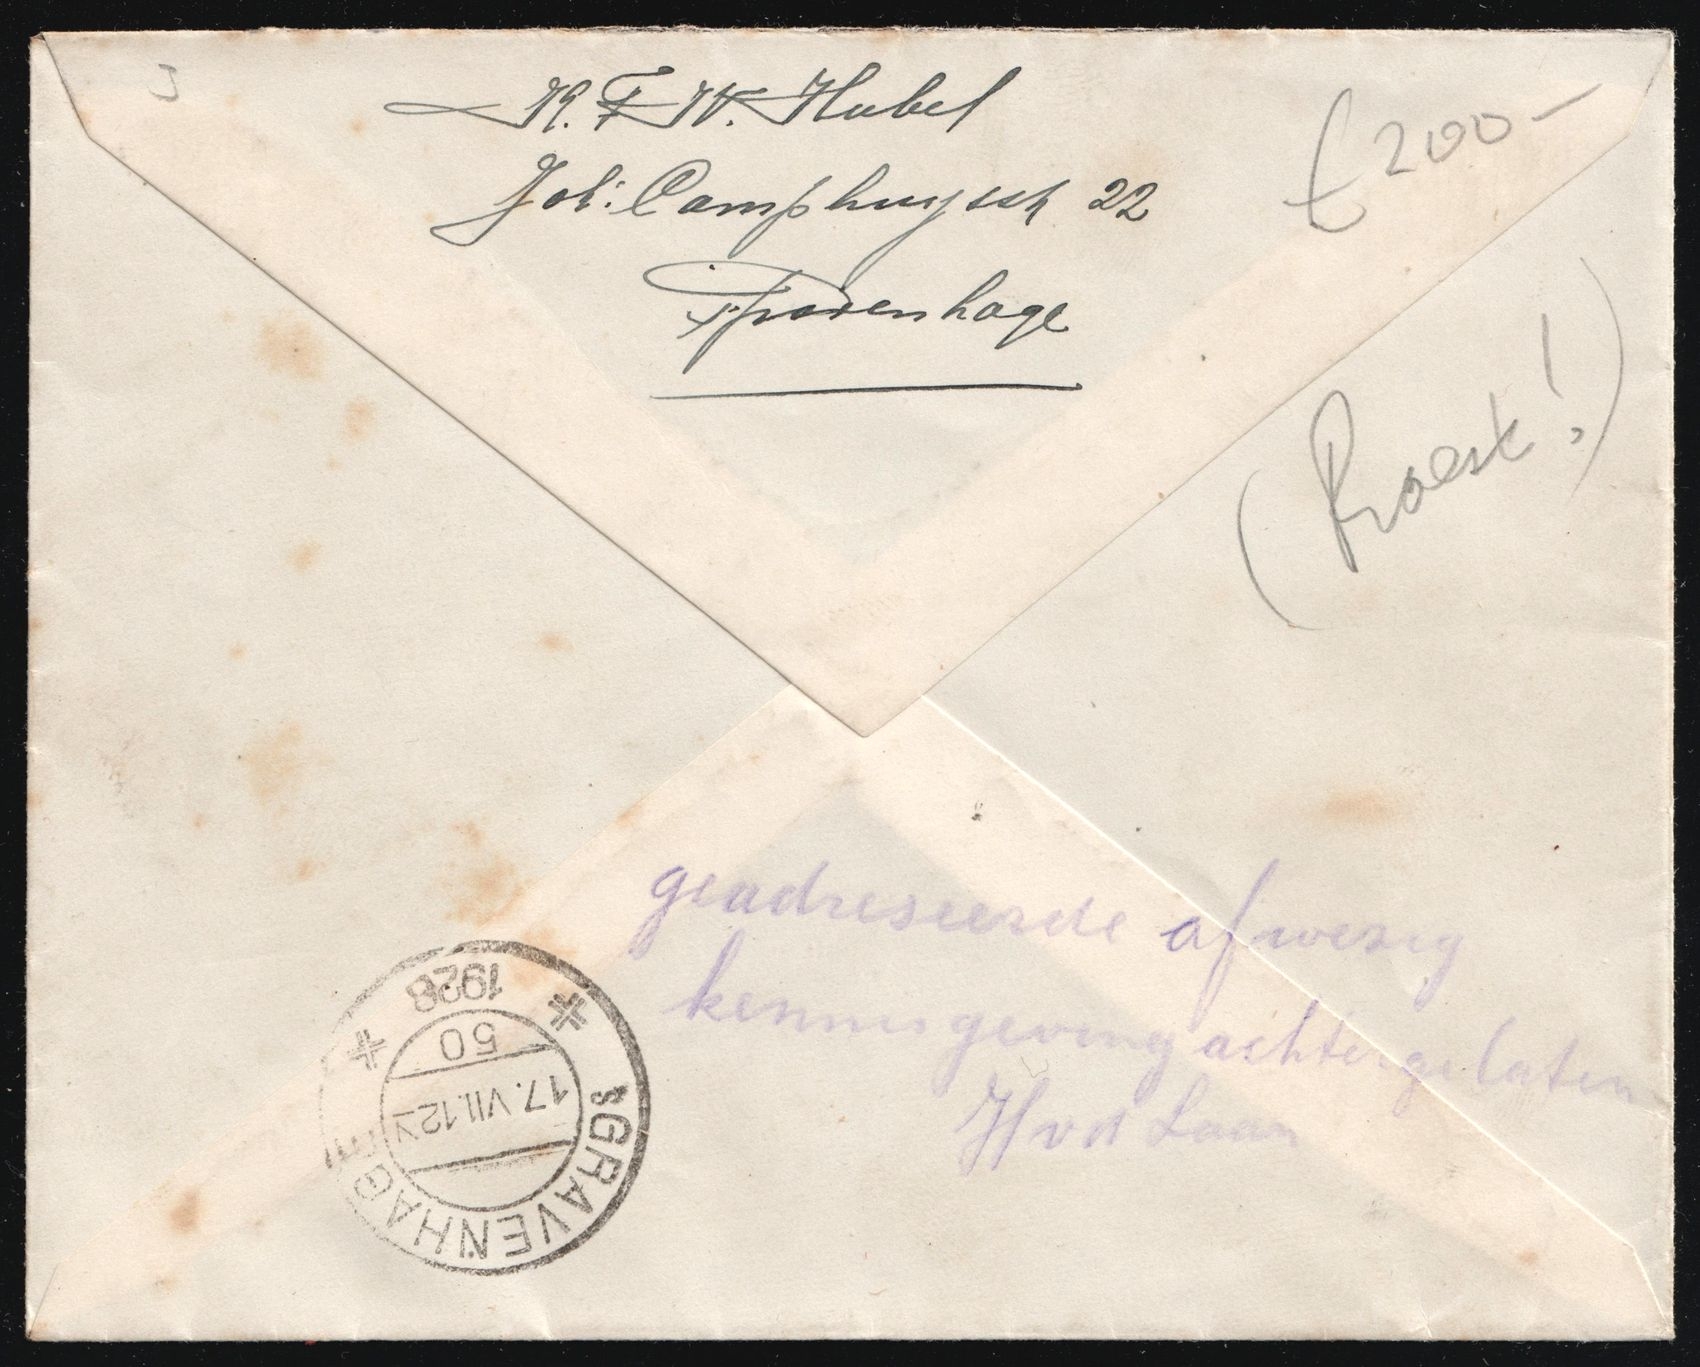 K. F. W. Hubel
€ 200-
Joh: Camphuysstr 22
's Gravenhage
(Roest!)
geadresseerde afwezig
kennisgeving achtergelaten
H v d Laan
'SGRAVENHAGE
17.VII.12V
50
1928